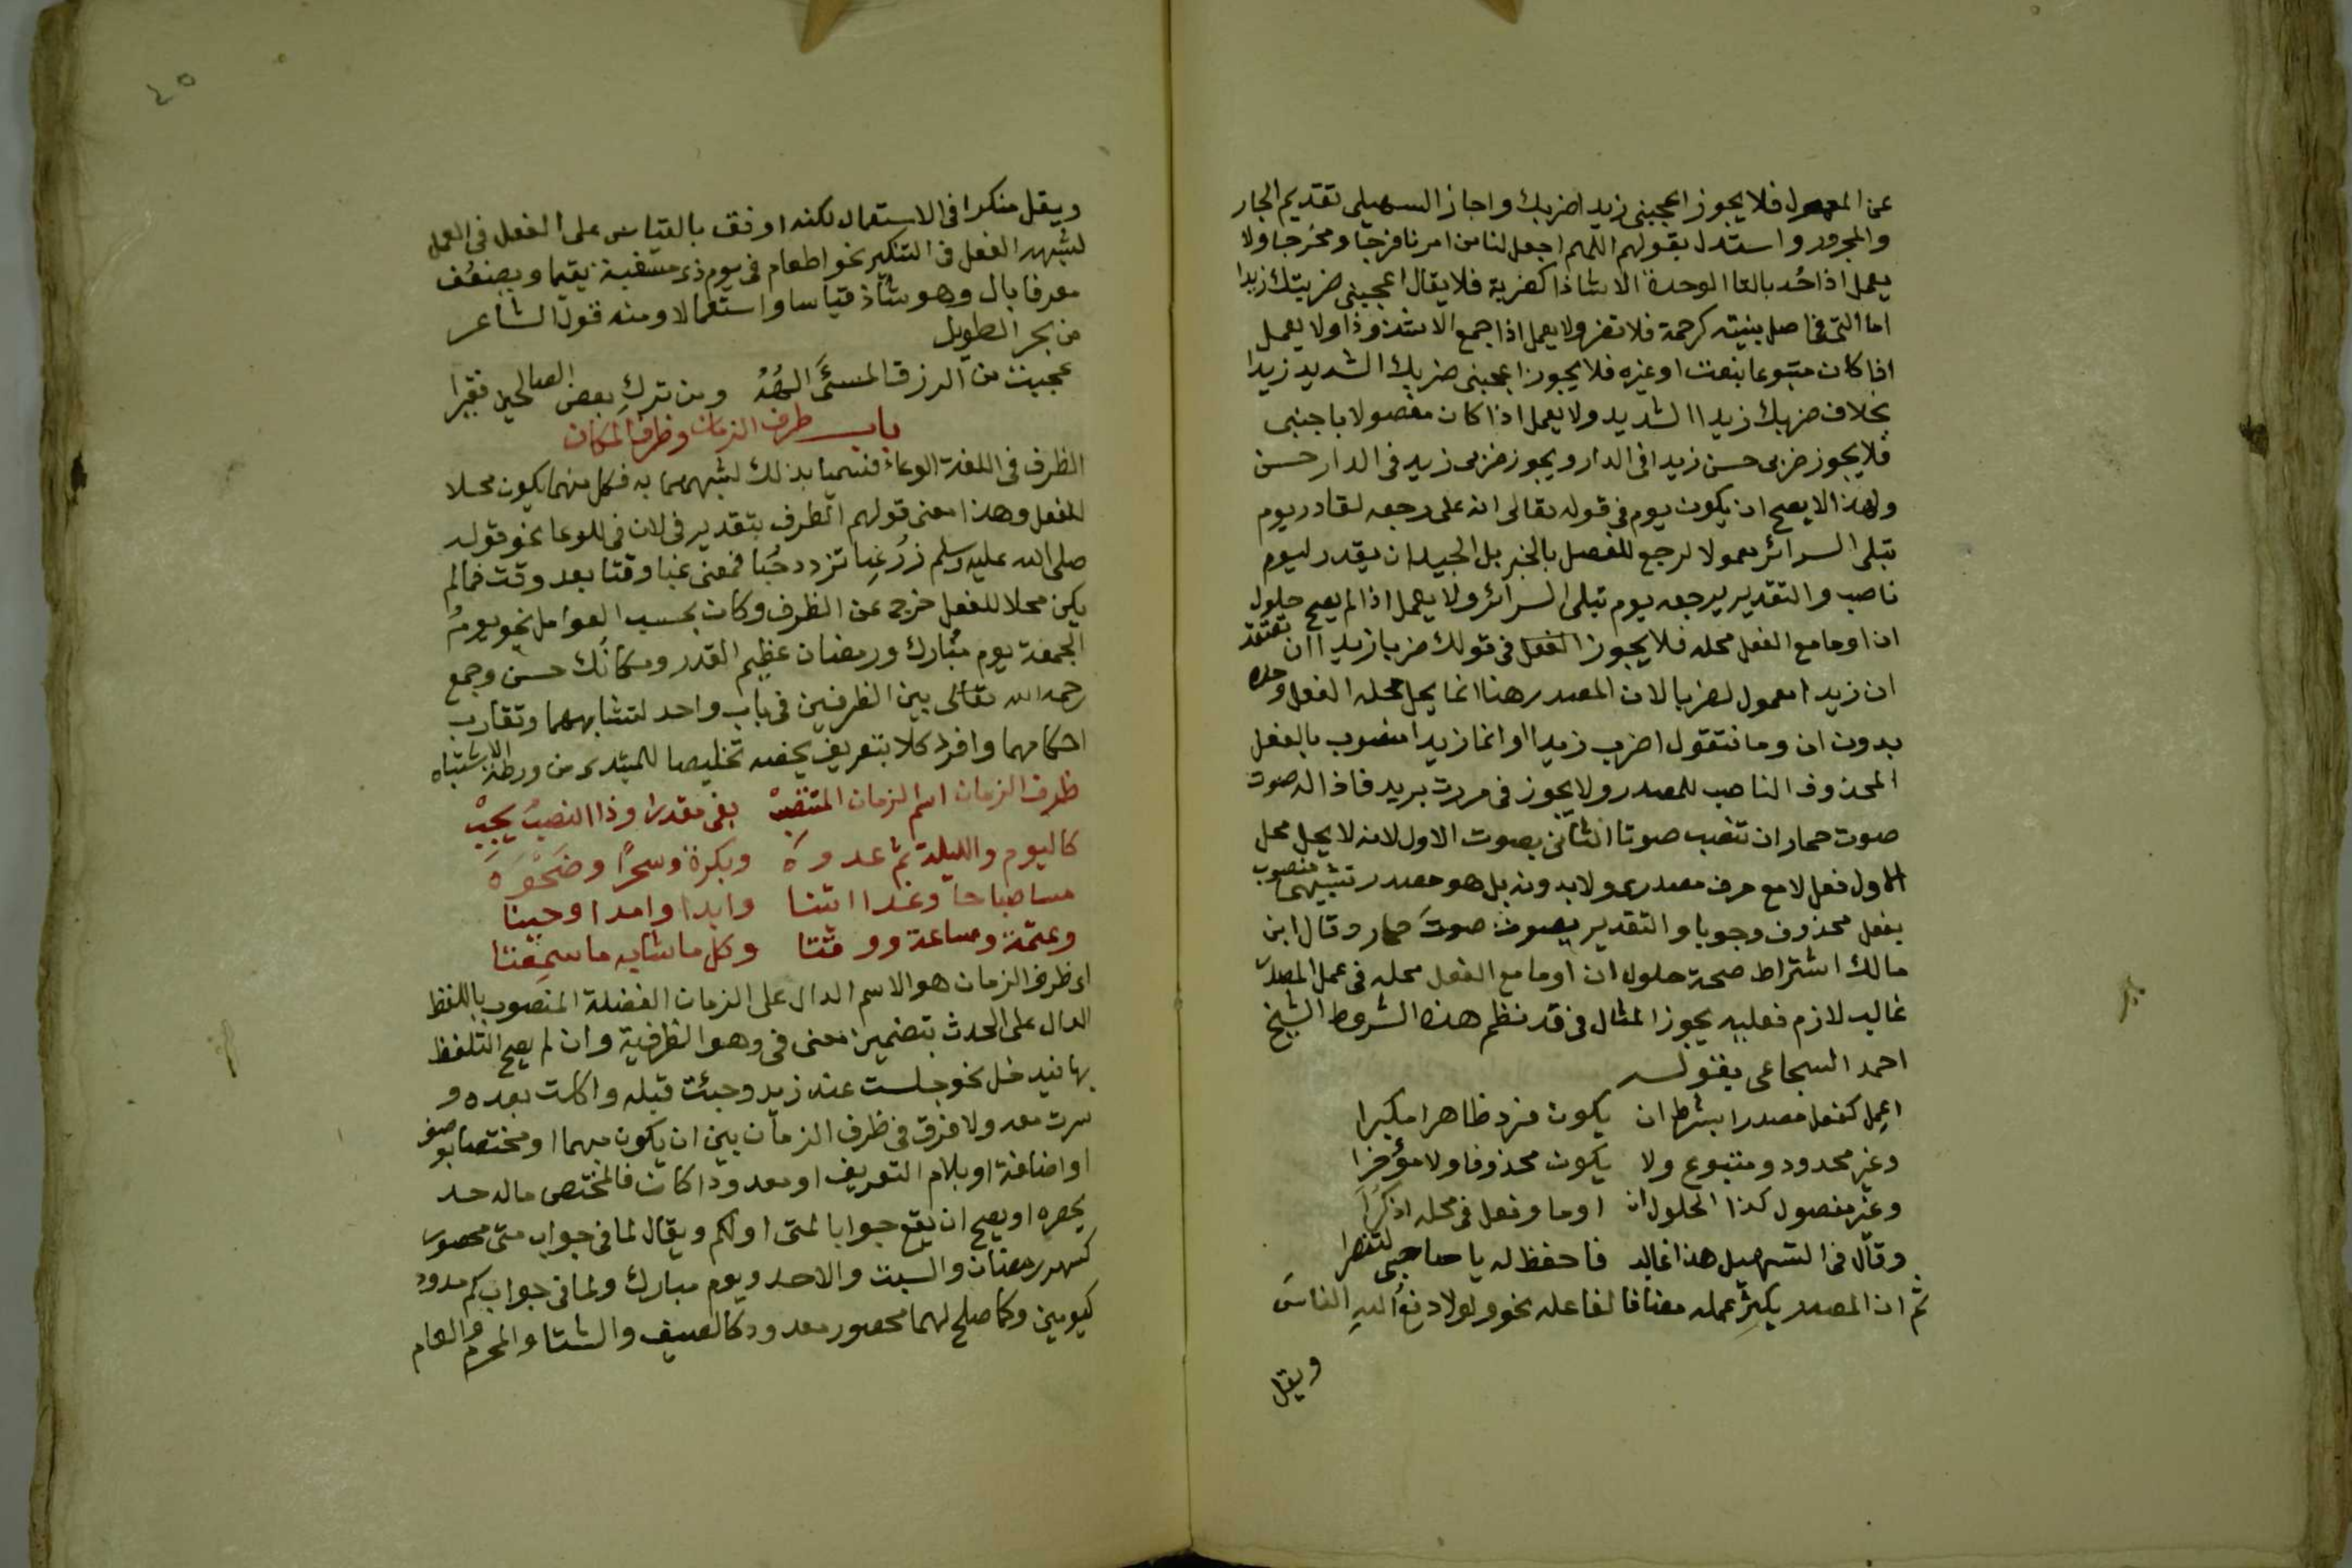 عن المعمول فلا يجوز اعجبنى زيدا ضربك واجاز السهيلى تقديم الجار
والمجرور واستدل بقولهم اللهم اجعل لنا من امرنا فرجا ومخرجا ولا
يعمل اذا حُد بالتا الوحدة الا شاذا كضربة فلا يقال اعجبنى ضربتك زيدا
اما التى فى اصل بنيته كرحمة فلا تضر ولا يعمل اذا جمع الا شذوذا ولا يعمل
اذا كان متبوعا بنعت او غيره فلا يجوز اعجبنى ضربك الشديد زيدا
بخلاف ضربك زيدا الشديد ولا يعمل اذا كان مفصولا باجنبى
فلا يجوز ضربى حسن زيدا فى الدار ويجوز ضربى زيد فى الدار حسن
ولهذا لا يصح ان يكون يوم فى قوله تعالى انه على رجعه لقادر يوم
تبلى السرائر معمولا لرجع للفصل بالخبر بل الجيد ان يقدر ليوم
ناصب والتقدير يرجعه يوم تبلى السرائر ولا يعمل اذا لم يصح حلول
ان او ما مع الفعل محله فلا يجوز الفعل فى قولك ضربا زيدا ان تعتقد
ان زيدا معمول لضربا لان المصدر هنا انما يحل محله الفعل وحده
بدون ان وما فتقول اضرب زيدا او انما زيدا منصوب بالفعل
المحذوف الناصب للمصدر ولا يجوز فى مررت بزيد فاذا له صوت
صوت حمار ان تنصب صوتا الثانى بصوت الاول لانه لا يحل محل
الاول فعل لا مع حرف مصدرى ولا بدونه بل هو مصدر تشبيهى منصوب
بفعل محذوف وجوبا والتقدير يصوت صوت حمار وقال ابن
مالك اشتراط صحة حلول ان او ما مع الفعل محله فى عمل المصدر
غالب لازم فعليه يجوز المثال فى قد نظم هذه الشروط الشيخ
احمد السجاعى بقوله
اعمل كفعل مصدرا بشرط ان يكون فرد ظاهرا مكبرا
وغير محدود ومتبوع ولا يكون محذوفا ولا مؤخرا
وغير مفصول كذا الحلول ان او ما وفعل فى محله اذكرا
وقال فى التسهيل هذا غالب فاحفظ له يا صاحبى لتنصرا
ثم ان المصدر يكثر عمله مضافا لفاعله نحو ولولا دفع الله الناس
ويقل
٤٥
ويقل منكرا فى الاستعمال لكنه اوفق بالقياس على الفعل فى العمل
لشبهه الفعل فى التنكير نحو اطعام فى يوم ذى مسغبة يتيما ويضعف
معرفا بال وهو شاذ قياسا واستعمالا ومنه قول الشاعر
من بحر الطويل
عجبت من الرزق المسئَ الهُه ومن تركِ بعض الصالحين فقيرا
باب ظرف الزمان وظرف المكان
الظرف فى اللغة الوعاء فسميا بذلك لشبههما به فكل منهما يكون محلا
للفعل وهذا معنى قولهم الظرف بتقدير فى لان فى للوعا نحو قوله
صلى الله عليه وسلم زر غِبا تزدد حُبا فمعنى غبا وقتا بعد وقت فما لم
يكن محلا للفعل خرج عن الظرف وكان بحسب العوامل نحو يومُ
الجمعة يوم مبارك ورمضان عظيم القدر ومكانُك حسن وجمع
رحمه الله تعالى بين الظرفين فى باب واحد لتشابههما وتقارب
احكامهما وافرد كلا بتعريف يخصه تخليصا للمبتدى من ورطة الاشتباه
ظرف الزمان اسم الزمان المنتصبْ بفى مقدرا وذا النصبُ يجبْ
كاليوم والليلة ثم غدوه وبكرة وسحرًا وضَحْوَه
مسا صباحا وغدا اتتنا وابدا وامدا وحينا
وعتمة وساعة ووقتا وكل ما شابه ما سمعتا
اى ظرف الزمان هو الاسم الدال على الزمان الفضلة المنصوب باللفظ
الدال على الحدث بتضمين معنى فى وهو الظرفية وان لم يصح التلفظ
بها فيدخل نحو جلست عند زيد وجئت قبله واكلت بعده و
سرت معه ولا فرق فى ظرف الزمان بين ان يكون مبهما او مختصا بوصف
او اضافة او بلام التعريف او معدودا كان فالمختص ماله حد
يحصره او يصح ان يقع جوابا لمتى او لكم ويقال لما فى جواب متى محصور
كشهر رمضان والسبت والاحد ويوم مبارك ولما فى جواب كم معدود
كيومين وكما صلح لهما محصور معدود كالصيف والشتا والمحرم والعام